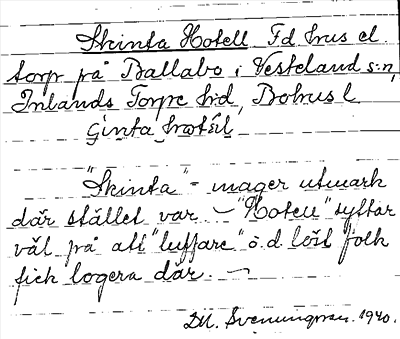 Skinta Hotell. Fd hus el.
torp på Ballabo i Västerland s:n,
Inlands Torpe hd, Bohus l.
"Skinta" - mager utmark
där stället var. - "Hotell" syftar
väl på att "luffare" o.d. löst folk
fick logera där. -
D.M. Svenungsson. 1940.